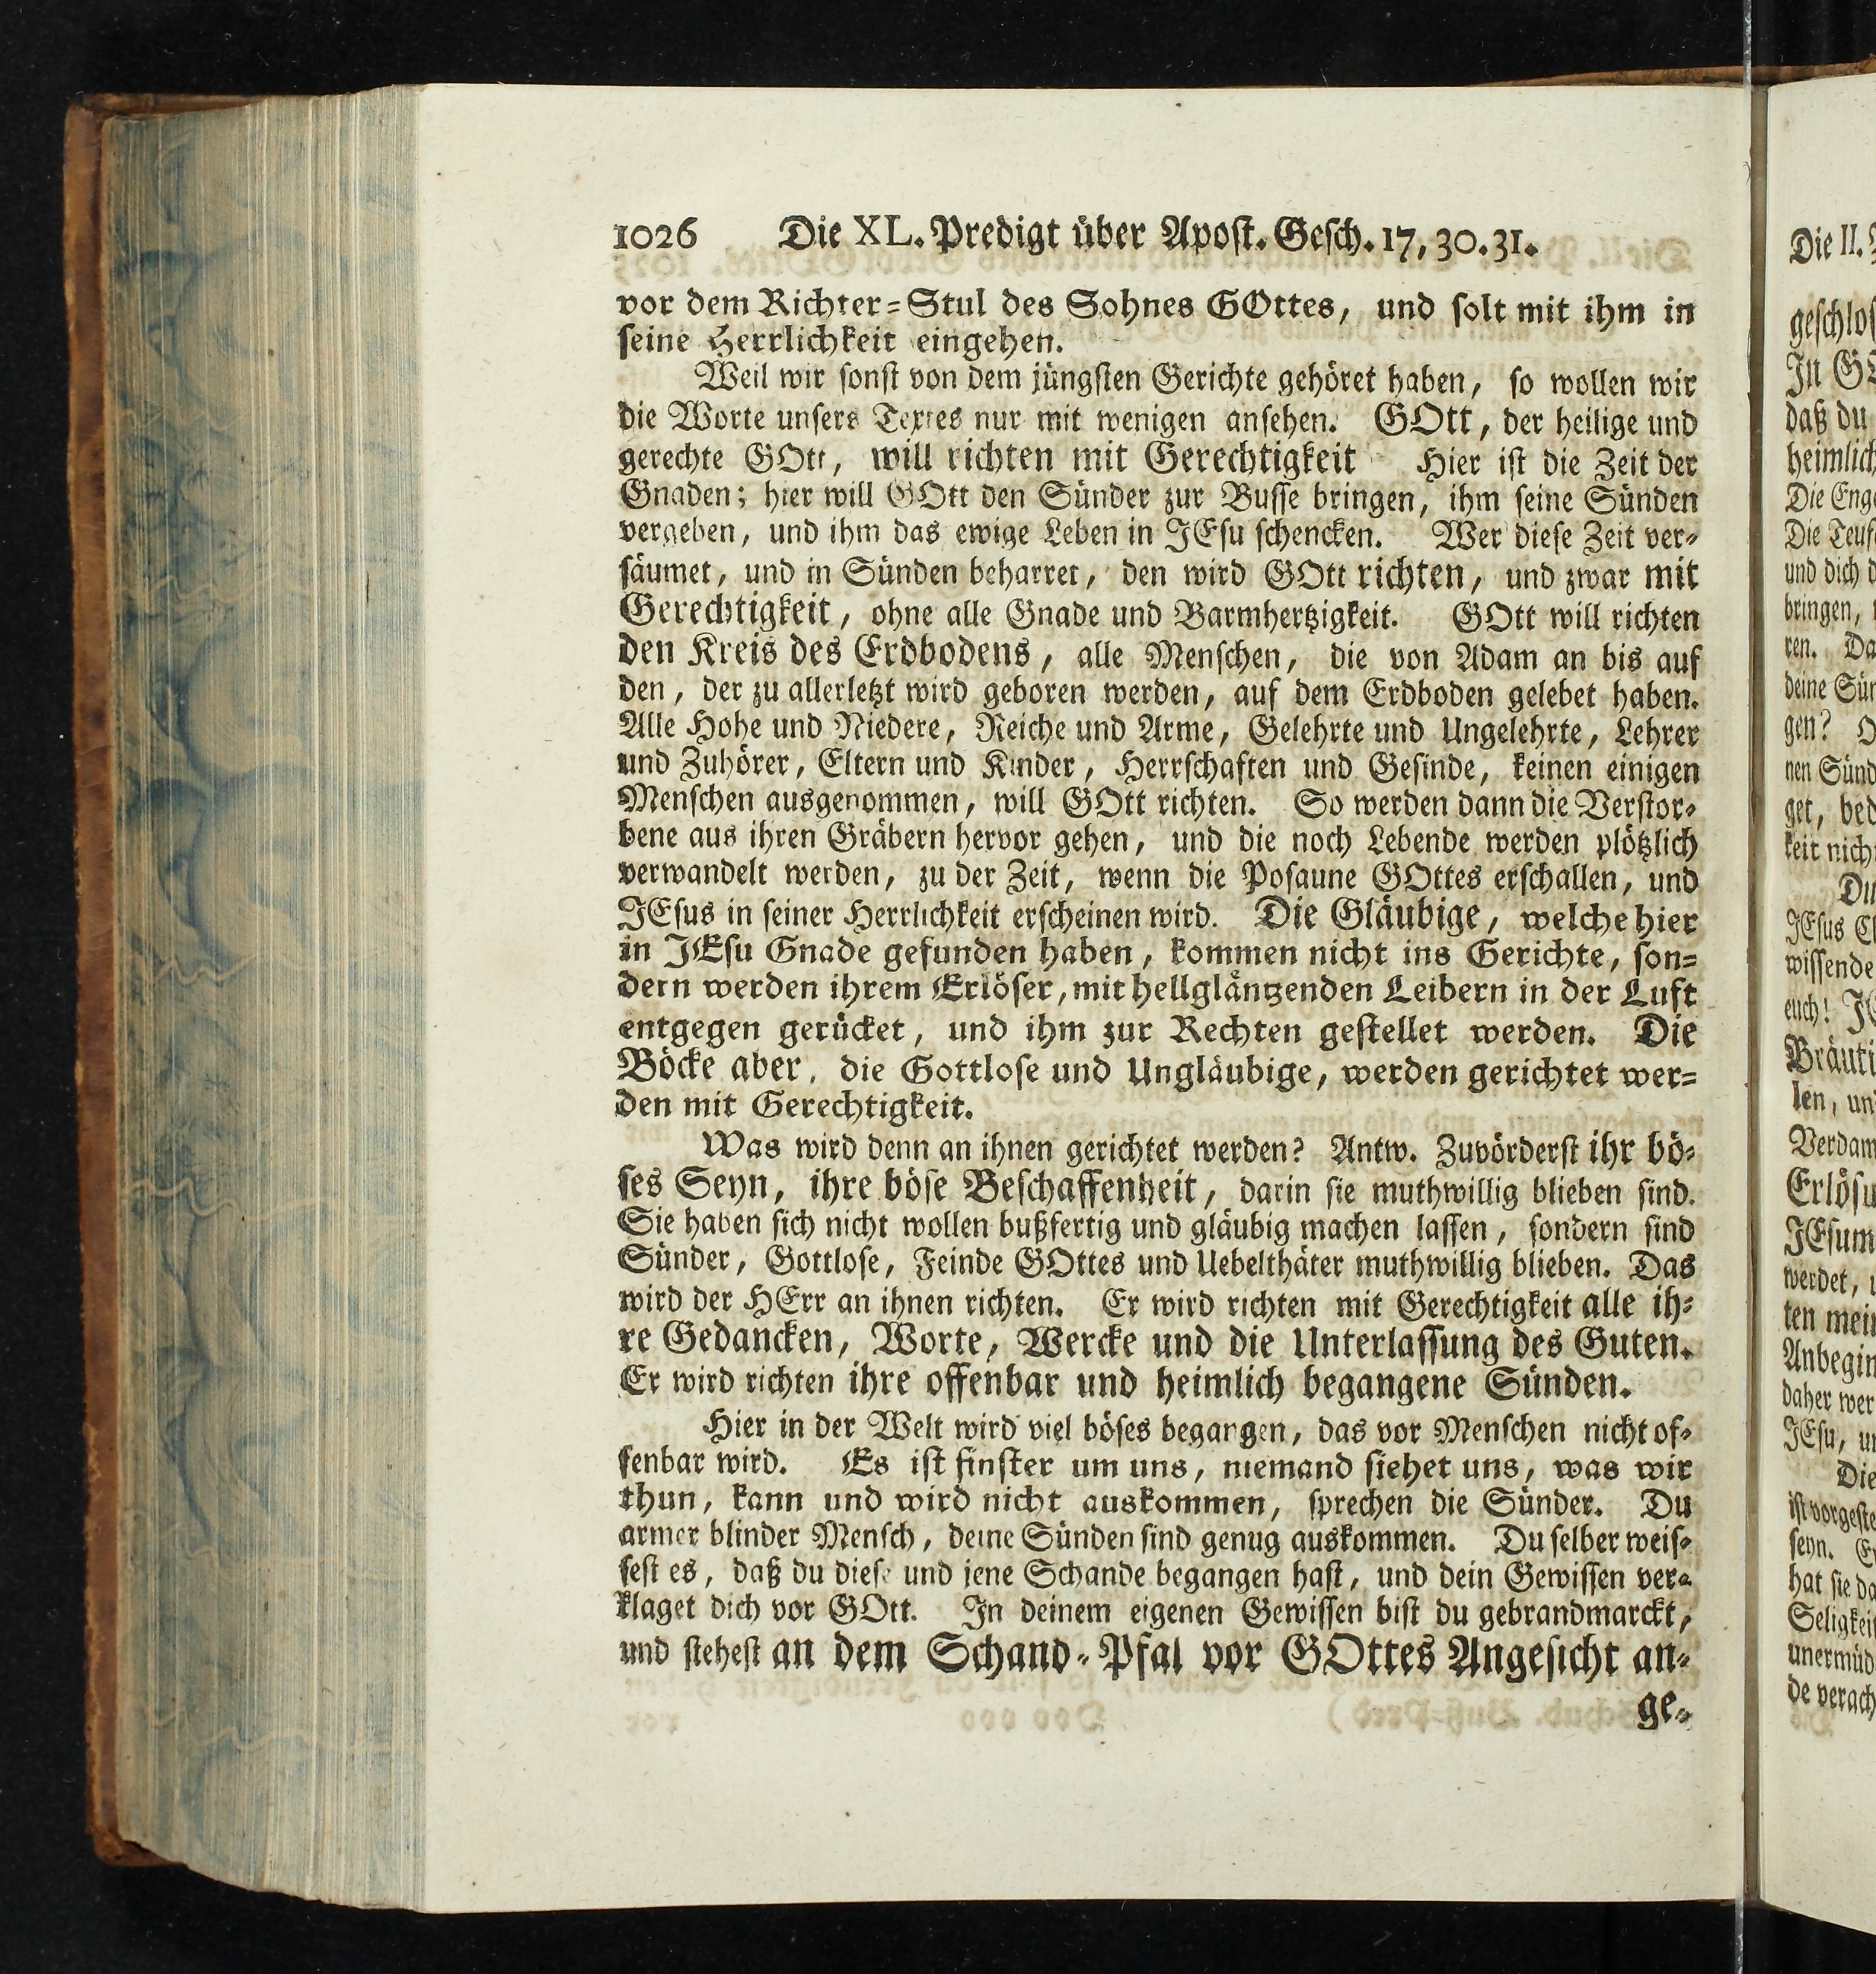 1026 Die XL. Predigt über Apost. Gesch. 17, 30. 31.
vor dem Richter-Stul des Sohnes GOttes, und solt mit ihm in
seine Herrlichkeit eingehen.
Weil wir sonst von dem jüngsten Gerichte gehöret haben, so wollen wir
die Worte unsers Textes nur mit wenigen ansehen. GOtt, der heilige und
gerechte GOtt, will richten mit Gerechtigkeit Hier ist die Zeit der
Gnaden; hier will GOtt den Sünder zur Busse bringen, ihm seine Sünden
vergeben, und ihm das ewige Leben in JEsu schencken. Wer diese Zeit ver-
säumet, und in Sünden beharret, den wird GOtt richten, und zwar mit
Gerechtigkeit, ohne alle Gnade und Barmhertzigkeit. GOtt will richten
den Kreis des Erdbodens, alle Menschen, die von Adam an bis auf
den, der zu allerletzt wird geboren werden, auf dem Erdboden gelebet haben.
Alle Hohe und Niedere, Reiche und Arme, Gelehrte und Ungelehrte, Lehrer
und Zuhörer, Eltern und Kinder, Herrschaften und Gesinde, keinen einigen
Menschen ausgenommen, will GOtt richten. So werden dann die Verstor-
bene aus ihren Gräbern hervor gehen, und die noch Lebende werden plötzlich
verwandelt werden, zu der Zeit, wenn die Posaune GOttes erschallen, und
JEsus in seiner Herrlichkeit erscheinen wird. Die Gläubige, welche hier
in JEsu Gnade gefunden haben, kommen nicht ins Gerichte, son-
dern werden ihrem Erlöser, mit hellgläntzenden Leibern in der Luft
entgegen gerücket, und ihm zur Rechten gestellet werden. Die
Böcke aber, die Gottlose und Ungläubige, werden gerichtet wer-
den mit Gerechtigkeit.
Was wird denn an ihnen gerichtet werden? Antw. Zuvörderst ihr bö-
ses Seyn, ihre böse Beschaffenheit, darin sie muthwillig blieben sind.
Sie haben sich nicht wollen bußfertig und gläubig machen lassen, sondern sind
Sünder, Gottlose, Feinde GOttes und Uebelthäter muthwillig blieben. Das
wird der HErr an ihnen richten. Er wird richten mit Gerechtigkeit alle ih-
re Gedancken, Worte, Wercke und die Unterlassung des Guten.
Er wird richten ihre offenbar und heimlich begangene Sünden.
Hier in der Welt wird viel böses begangen, das vor Menschen nicht of-
fenbar wird. Es ist finster um uns, niemand siehet uns, was wir
thun, kann und wird nicht auskommen, sprechen die Sünder. Du
armer blinder Mensch, deine Sünden sind genug auskommen. Du selber weis-
sest es, daß du diese und jene Schande begangen hast, und dein Gewissen ver-
klaget dich vor GOtt. In deinem eigenen Gewissen bist du gebrandmarckt,
und stehest an dem Schand-Pfal vor GOttes Angesicht an-
ge-
Die II.
geschlos
In GO
daß du
heimlich
Die Enge
Die Teuf
und dich d
bringen,
ren. Da
deine Sün
gen? O
nen Sünd
get, bed
keit nich
Du
JEsus C
wissende
euch! J
Bräuti
len, un
Verdam
Erlösu
JEsum
werdet, u
ten mei
Anbegin
daher wer
JEsu, u
Die
ist vorgeste
seyn. E
hat sie da
Seligkeit
unermüd
de verach